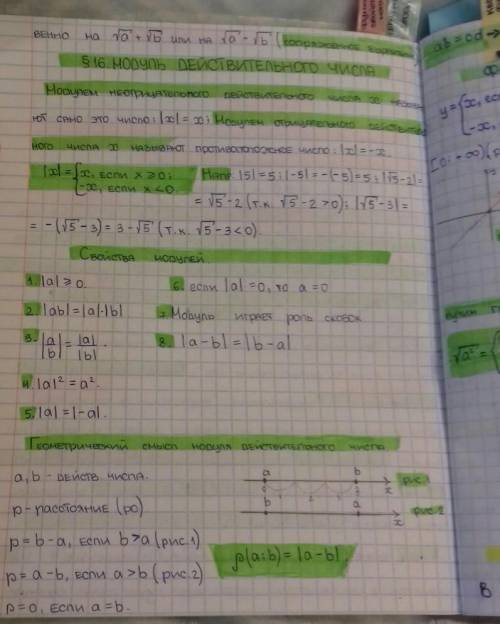 венно на √a + √b или на √a - √b (сопряженное
§16. Модуль действительного числа
Модулем неотрицательного действительного числа x
ют само это число: |x| = x; Модулем отрицательного
ного числа x называют противоположное число: |x| = -x.
|x| = {x, если x ⩾ 0; Напр: |5| = 5; |-5| = -(-5) = 5; |√5-2| =
-x, если x < 0.
= √5 - 2 (т.к. √5 - 2 > 0); |√5 - 3| =
= -(√5 - 3) = 3 - √5 (т.к. √5 - 3 < 0).
Свойства модулей
1. |a| ⩾ 0.
2. |ab| = |a|·|b|
3. |a/b| = |a|/|b|.
4. |a|² = a².
5. |a| = |-a|.
6. если |a| = 0, то a = 0
7. Модуль играет роль скобок
8. |a - b| = |b - a|
Геометрический смысл модуля действительного числа
a, b - действ. числа.
ρ - расстояние (ро)
ρ = b - a, если b > a (рис.1)
ρ = a - b, если a > b (рис.2)
ρ = 0, если a = b.
a b x рис.1
b a x рис.2
ρ(a; b) = |a - b|.
ab = cd →
y = {x, ес
-x,
[0; +∞)
√a² = {
В